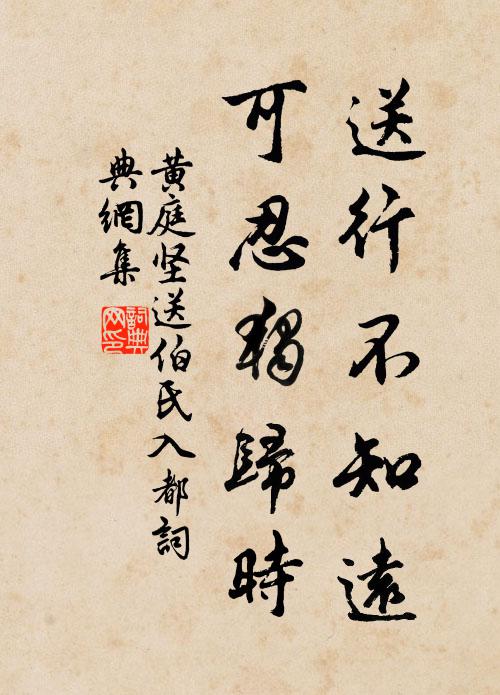 送行不知遠
可忍獨歸時
黄庭坚送伯氏入都詞
典網集
詞典网印